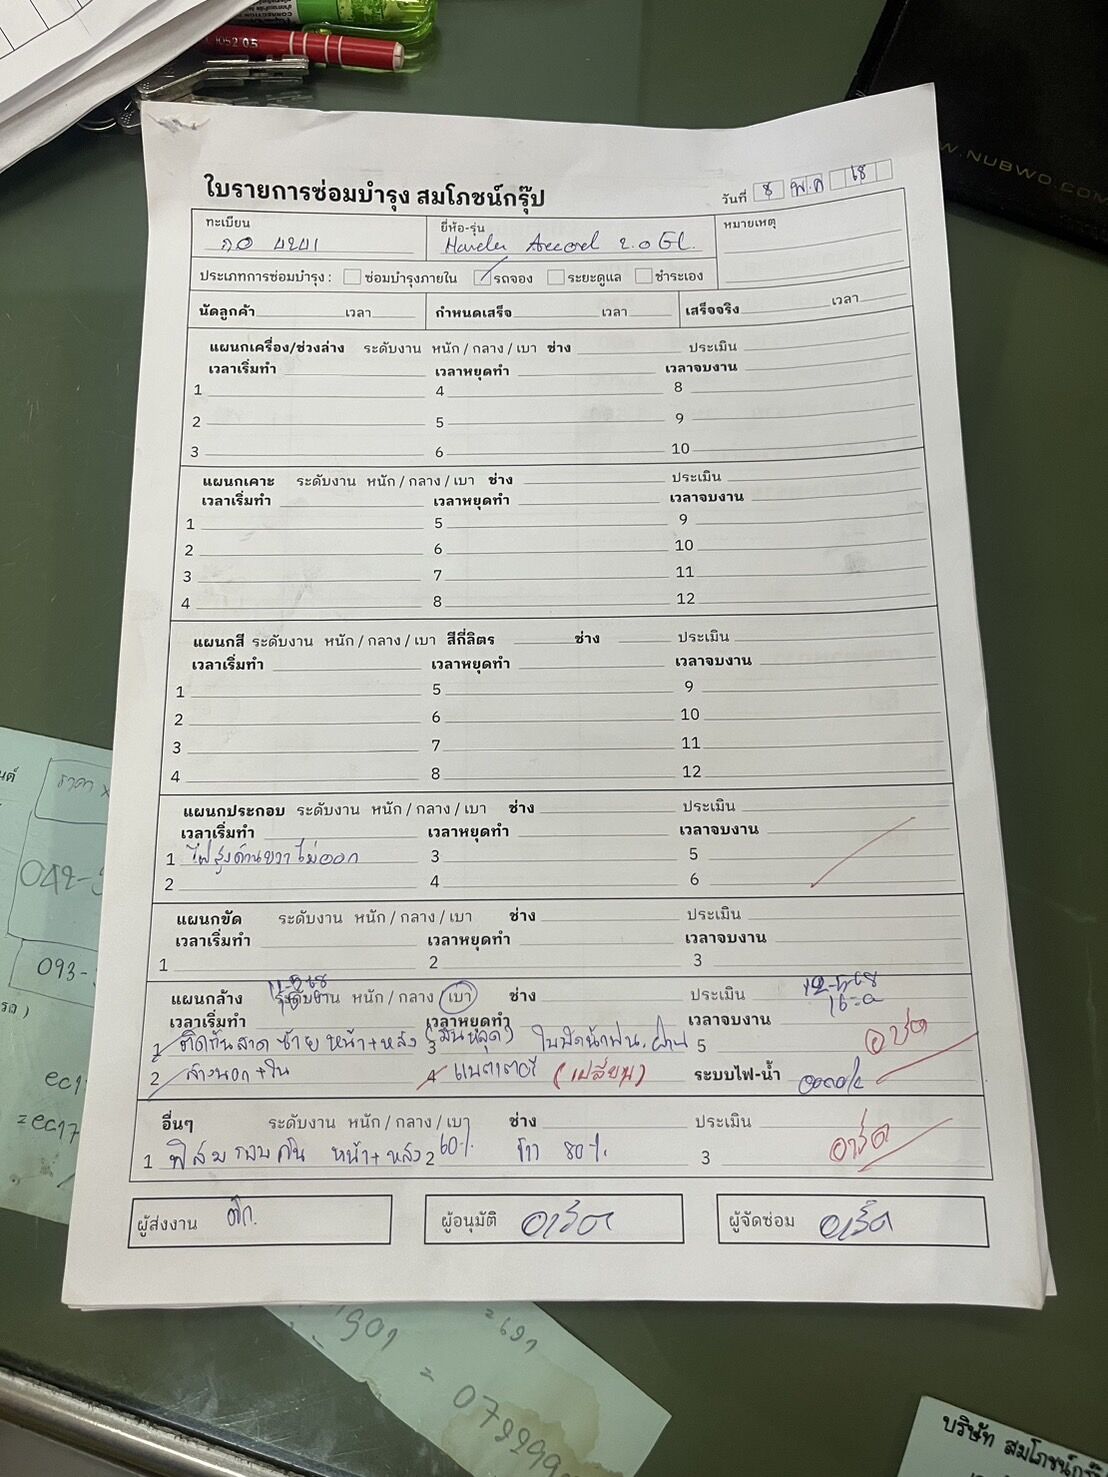 CORRECTION
1052 0.5
W.NUBWO.COM
ใบรายการซ่อมบำรุง สมโภชน์กรุ๊ป
วันที่ 8 พ.ค 68
ทะเบียน
4241
ยี่ห้อ-รุ่น
Accord 2.0 EL.
หมายเหตุ
ประเภทการซ่อมบำรุง : ซ่อมบำรุงภายใน รถจอง ระยะดูแล ชำระเอง
นัดลูกค้า เวลา กำหนดเสร็จ เวลา เสร็จจริง เวลา
แผนกเครื่อง/ช่วงล่าง ระดับงาน หนัก / กลาง / เบา ช่าง ประเมิน
เวลาเริ่มทำ เวลาหยุดทำ เวลาจบงาน
1 4 8
2 5 9
3 6 10
แผนกเคาะ ระดับงาน หนัก / กลาง / เบา ช่าง ประเมิน
เวลาเริ่มทำ เวลาหยุดทำ เวลาจบงาน
1 5 9
2 6 10
3 7 11
4 8 12
แผนกสี ระดับงาน หนัก / กลาง / เบา สีกี่ลิตร ช่าง ประเมิน
เวลาเริ่มทำ เวลาหยุดทำ เวลาจบงาน
1 5 9
2 6 10
3 7 11
4 8 12
แผนกประกอบ ระดับงาน หนัก / กลาง / เบา ช่าง ประเมิน
เวลาเริ่มทำ เวลาหยุดทำ เวลาจบงาน
1 ไฟสูงด้านขวาไม่ออก 3 5
2 4 6
แผนกขัด ระดับงาน หนัก / กลาง / เบา ช่าง ประเมิน
เวลาเริ่มทำ เวลาหยุดทำ เวลาจบงาน
1 2 3
แผนกล้าง ระดับงาน หนัก / กลาง / เบา ช่าง ประเมิน
เวลาเริ่มทำ เวลาหยุดทำ เวลาจบงาน
1 ติดกันสาด ซ้าย หน้า+หลัง (มันหลุด) 3 ใบปัดน้ำฝน 5 อาร์ต
2 ล้างนอก+ใน 4 แบตเตอรี่ (เปลี่ยน) ระบบไฟ-น้ำ
อื่นๆ ระดับงาน หนัก / กลาง / เบา ช่าง ประเมิน
1 ฟิล์มรอบคัน หน้า+หลัง 2 60% 80% 3 อาร์ต
ผู้ส่งงาน
ผู้อนุมัติ อาร์ต
ผู้จัดซ่อม อาร์ต
ราคา
042-
093-
รถ)
บริษัท สมโภชน์กรุ๊ป